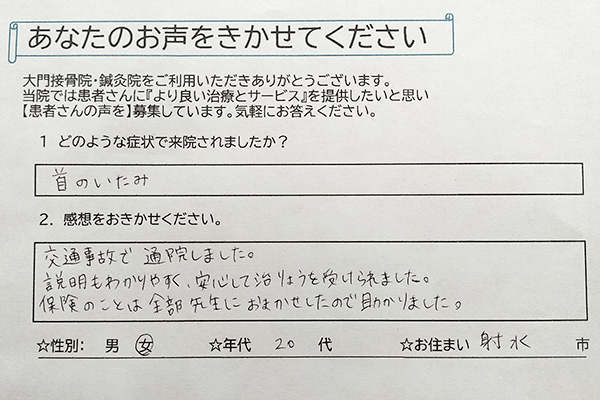 あなたのお声をきかせてください
大門接骨院・鍼灸院をご利用いただきありがとうございます。
当院では患者さんに『より良い治療とサービス』を提供したいと思い
【患者さんの声を】募集しています。気軽にお答えください。
1 どのような症状で来院されましたか？
首のいたみ
2. 感想をおきかせください。
交通事故で通院しました。
説明もわかりやすく、安心して治りょうを受けられました。
保険のことは全部先生におまかせしたので助かりました。
☆性別： 男 女 ☆年代 20 代 ☆お住まい 射水 市